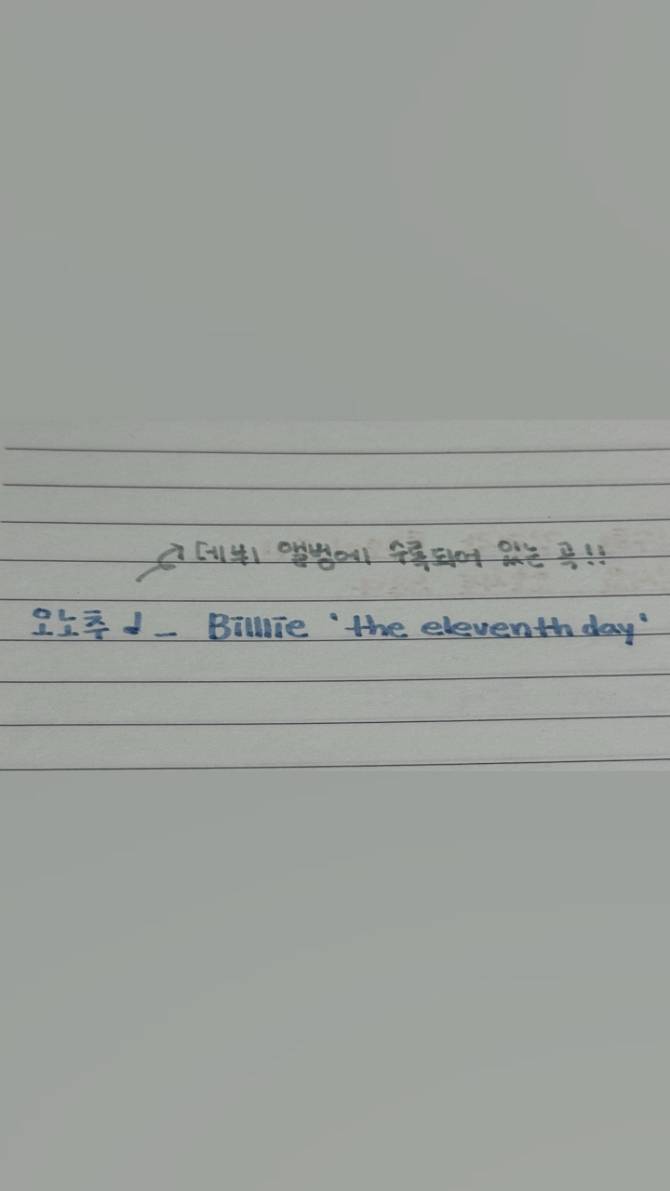 ↗ 데뷔 앨범에 수록되어 있는 곡!!
오노추 ♩ _ Billlie 'the eleventh day'